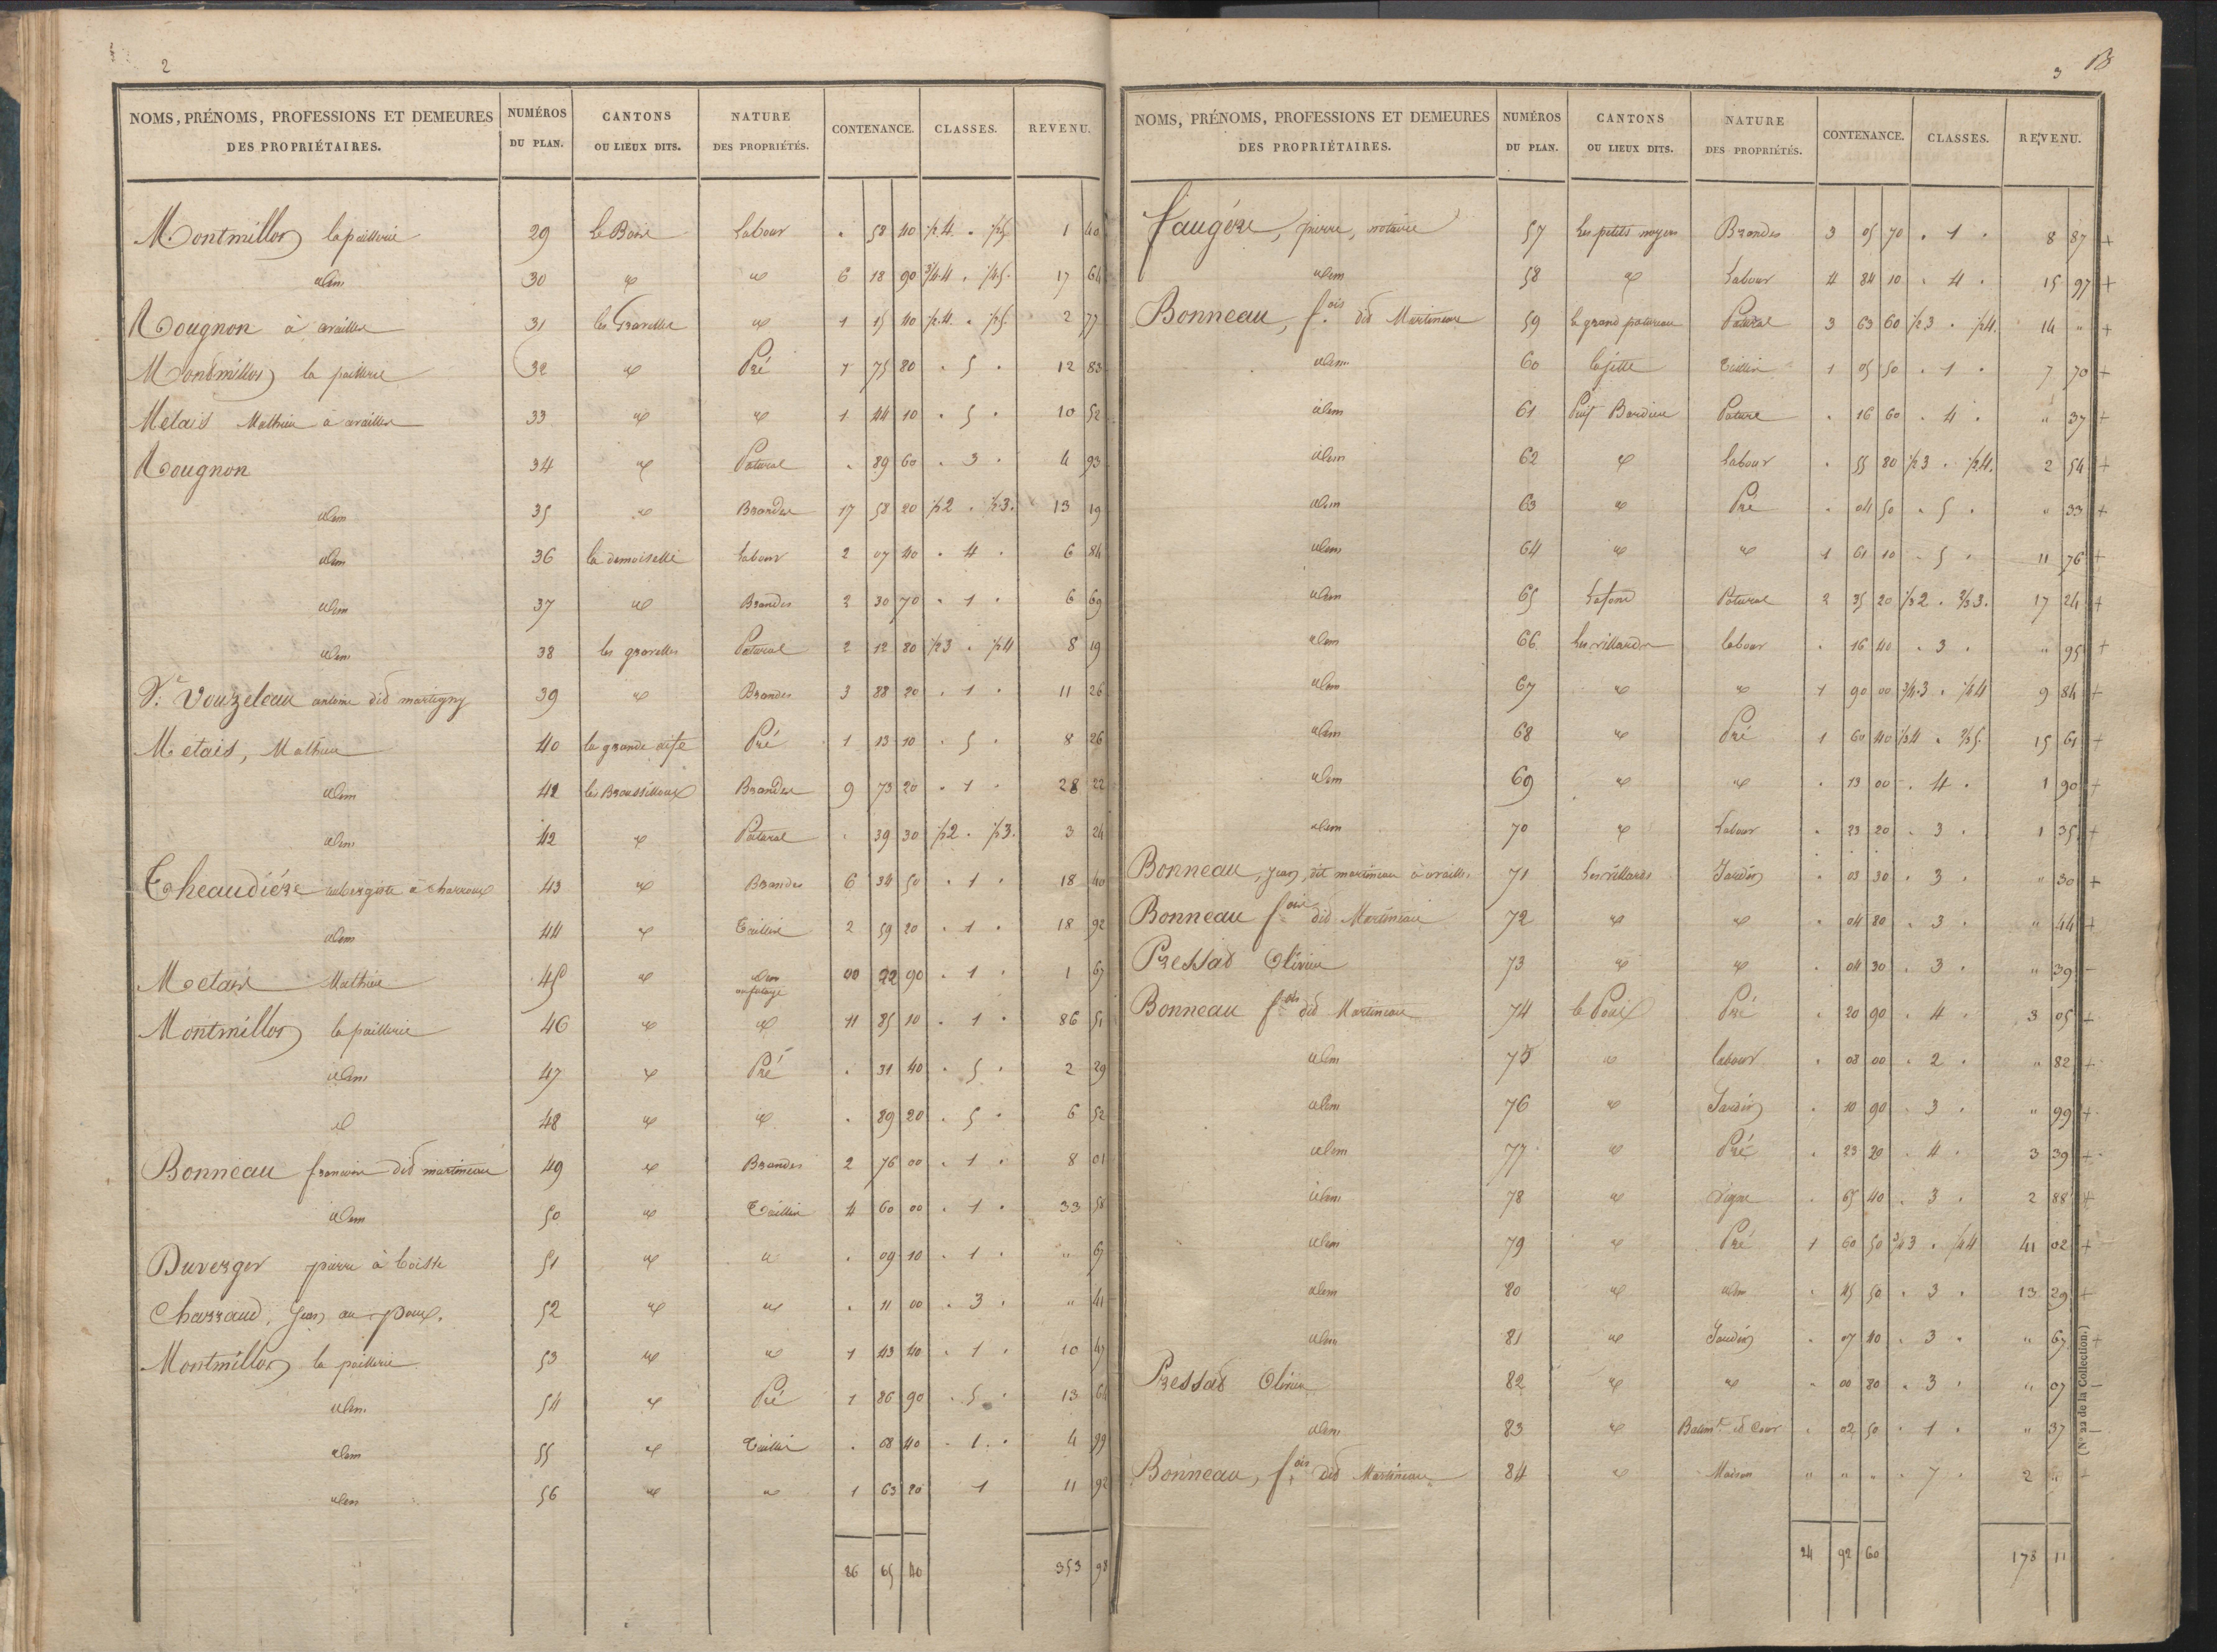 2
NOMS, PRÉNOMS, PROFESSIONS ET DEMEURES DES PROPRIÉTAIRES. | NUMÉROS DU PLAN. | CANTONS OU LIEUX DITS. | NATURE DES PROPRIÉTÉS. | CONTENANCE. | CLASSES. | REVENU.
Montmillon la paillerie 29 Labour . 58 40 1/2 4 . 1/2 5 1 40
idem 30 id id 6 18 90 3/4 4 . 1/4 5 17 64
Rougnon à availles 31 les Granelles id 1 15 40 1/2 4 . 1/2 5 2 77
Montmillon la paillerie 32 id Pré 1 75 80 . 5 . 12 83
Metais Mathieu à availles 33 id id 1 44 10 . 5 . 10 52
Rougnon 34 id Patural . 89 60 . 3 . 4 93
idem 35 id Brandes 17 58 20 1/2 2 . 1/2 3 . 13 19
idem 36 la demoiselle Labour 2 07 40 . 4 . 6 84
idem 37 id Brandes 2 30 70 . 1 . 6 69
idem 38 les granelles Patural 2 12 80 1/2 3 . 1/2 4 8 19
Sr. Vouzeleau antoine dit martigny 39 id Brandes 3 88 20 . 1 . 11 26
Metais, Mathieu 40 la grande Pré 1 13 10 . 5 . 8 26
idem 41 les Broussilloux Brandes 9 73 20 . 1 . 28 22
idem 42 id Patural . 39 30 1/2 2 . 1/2 3 . 3 24
Theaudière aubergiste à charroux 43 id Brandes 6 34 50 . 1 . 18 40
idem 44 id Taillis 2 59 20 . 1 . 18 92
Metais Mathieu 45 id idem 00 22 90 . 1 . 1 67
Montmillon la paillerie 46 id id 11 85 10 . 1 . 86 51
idem 47 id Pré . 31 40 . 5 . 2 29
id 48 id id . 89 20 . 5 . 6 52
Bonneau francois dit martineau 49 id Brandes 2 76 00 . 1 . 8 01
idem 50 id Taillis 4 60 00 . 1 . 33 58
Duverger pierre à 51 id id . 09 10 . 1 . " 67
Charraud, Jean au poux. 52 id id . 11 00 . 3 . " 41
Montmillon la paillerie 53 id id 1 43 40 . 1 . 10 47
idem 54 id Pré 1 86 90 . 5 . 13 64
idem 55 id Taillis . 68 40 . 1 . 4 99
idem 56 id id 1 63 20 1 11 92
86 65 40 353 98
3
NOMS, PRÉNOMS, PROFESSIONS ET DEMEURES DES PROPRIÉTAIRES. | NUMÉROS DU PLAN. | CANTONS OU LIEUX DITS. | NATURE DES PROPRIÉTÉS. | CONTENANCE. | CLASSES. | REVENU.
faugère, pierre, notaire 57 les petits noyers Brandes 3 05 70 . 1 . 8 87 +
idem 58 id Labour 4 84 10 . 4 . 15 97 +
Bonneau, fois dit Martineau 59 le grand patureau Patural 3 63 60 1/2 3 . 1/2 4. 14 " +
idem 60 Taillis 1 05 50 . 1 . 7 70 +
idem 61 Pature . 16 60 . 4 . " 37 +
idem 62 id Labour . 55 80 1/2 3 . 1/2 4. 2 54 +
idem 63 id Pré . 04 50 . 5 . " 33 +
idem 64 id id 1 61 10 . 5 . 11 76 +
idem 65 Lafond Patural 2 35 20 1/3 2 . 2/3 3. 17 24 +
idem 66 Les villards labour . 16 40 . 3 . " 95 +
idem 67 id id 1 90 00 3/4 3 . 1/4 4 9 84 +
idem 68 id Pré 1 60 40 1/3 4 . 2/3 5. 15 61 +
idem 69 id id . 13 00 . 4 . 1 90 +
idem 70 id Labour . 23 20 . 3 . 1 35 +
Bonneau, jean, dit martineau à availles 71 Les villards Jardin . 03 30 . 3 . " 30 +
Bonneau fois dit Martineau 72 id id . 04 80 . 3 . " 44 +
Pressat Olivier 73 id id . 04 30 . 3 . " 39 -
Bonneau fois dit Martineau 74 le Poux Pré . 20 90 . 4 . 3 05 +
idem 75 id labour . 08 00 . 2 . " 82 +
idem 76 id Jardin . 10 90 . 3 . " 99 +
idem 77 id Pré . 23 20 . 4 . 3 39 +
idem 78 id vigne . 65 40 . 3 . 2 88 +
idem 79 id Pré 1 60 50 3/4 3 . 1/4 4 41 02 +
idem 80 id idem . 45 50 . 3 . 13 29 +
idem 81 id Jardin . 07 40 . 3 . " 67 +
Pressat Olivier 82 id id . 00 80 . 3 . " 07 -
idem 83 id Batimt et Cour . 02 50 . 1 . " 37 -
Bonneau, fois dit Martineau 84 id Maison " " " . 7 . 2 " +
24 92 60 178 11
(N° 22 de la Collection.)